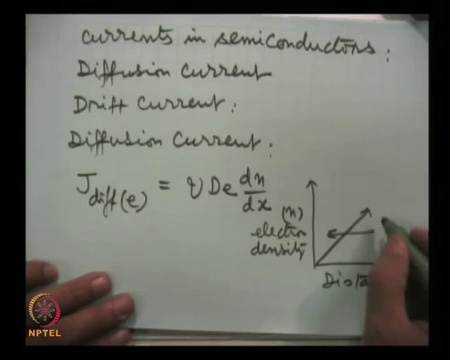 currents in semiconductors:
Diffusion Current
Drift Current:
Diffusion Current:
J diff(e) = q De dn/dx
(n)
electron
density
Dista
NPTEL